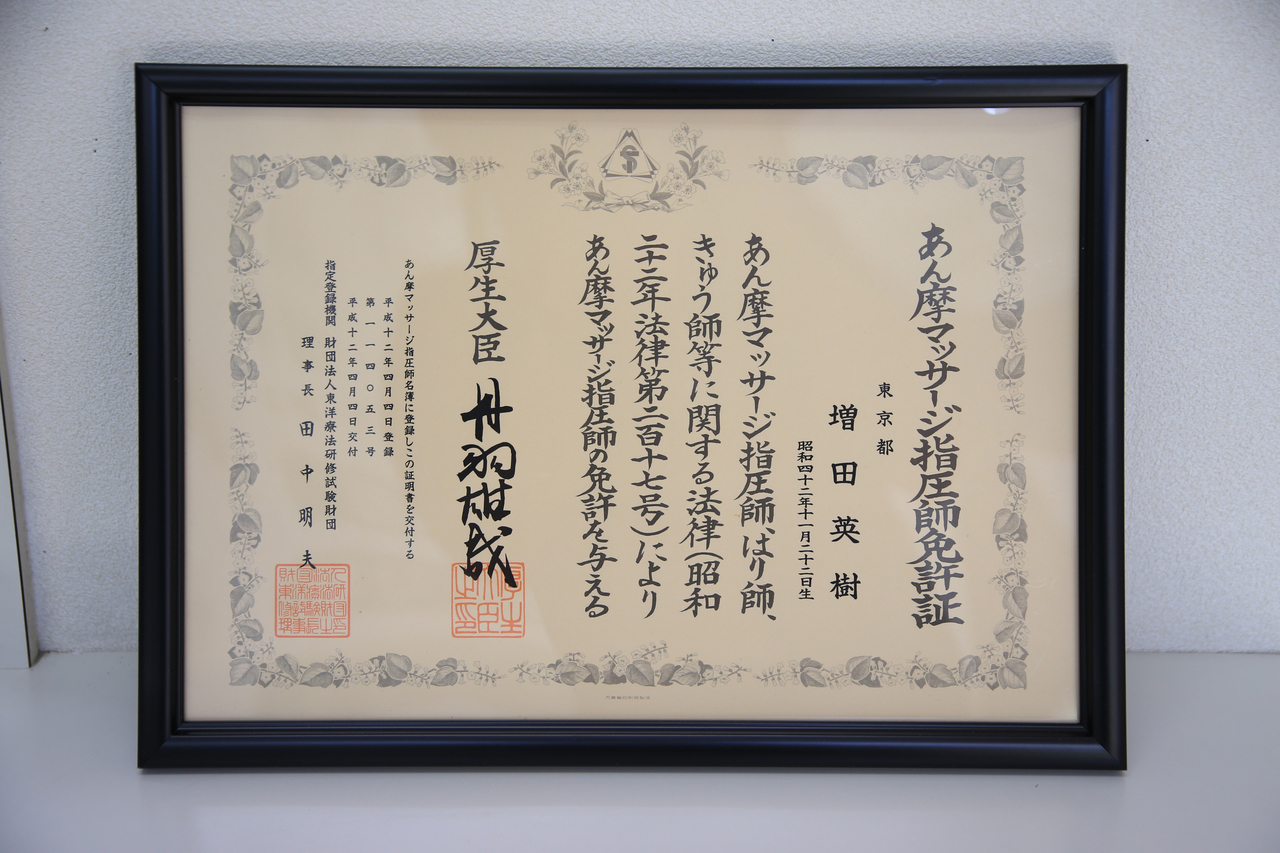 あん摩マッサージ指圧師免許証
東京都
増田英樹
昭和四十二年十一月二十二日生
あん摩マッサージ指圧師、はり師、
きゅう師等に関する法律（昭和
二十二年法律第二百十七号）により
あん摩マッサージ指圧師の免許を与える
厚生大臣 丹羽雄哉
あん摩マッサージ指圧師名簿に登録しこの証明書を交付する
平成十二年四月四日登録
第一一四〇五三号
平成十二年四月四日交付
指定登録機関 財団法人東洋療法研修試験財団
理事長 田中明夫
厚生大臣之印